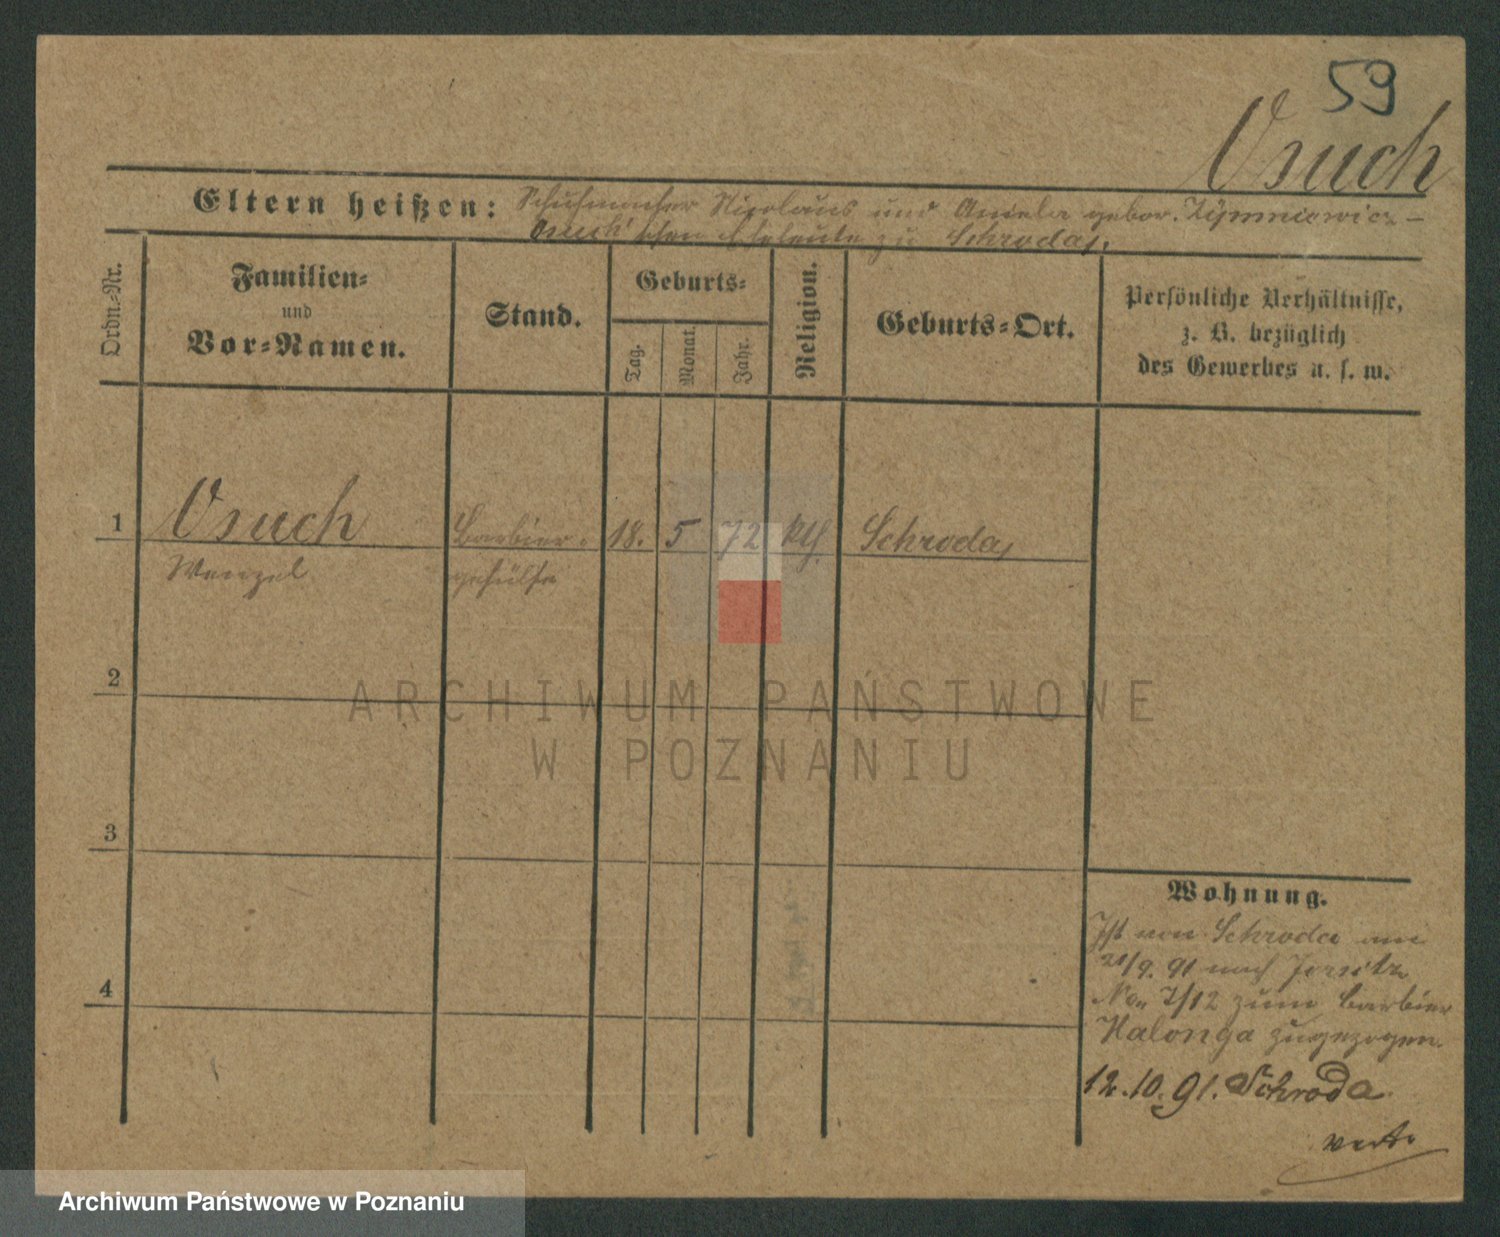 59
Osuch
Eltern heißen: Schuhmacher Nicolaus und Aniela gebor. Zymniewicz-
Osuch'schen Eheleute zu Schroda.
Ordn.-Nr.
Familien-
und
Vor-Namen.
Stand.
Geburts-
Tag.
Monat.
Jahr.
Religion.
Geburts-Ort.
Persönliche Verhältnisse,
z. B. bezüglich
des Gewerbes u. s. w.
1 Osuch Barbier- 18. 5 72 kth. Schroda
Wenzel gehülfe
2
3
4
Wohnung.
Ist von Schroda am
21/9. 91 nach Jersitz
No. 7/12 zum Barbier
Halonga zugezogen.
12.10.91. Schroda.
verte
ARCHIWUM PAŃSTWOWE
W POZNANIU
Archiwum Państwowe w Poznaniu